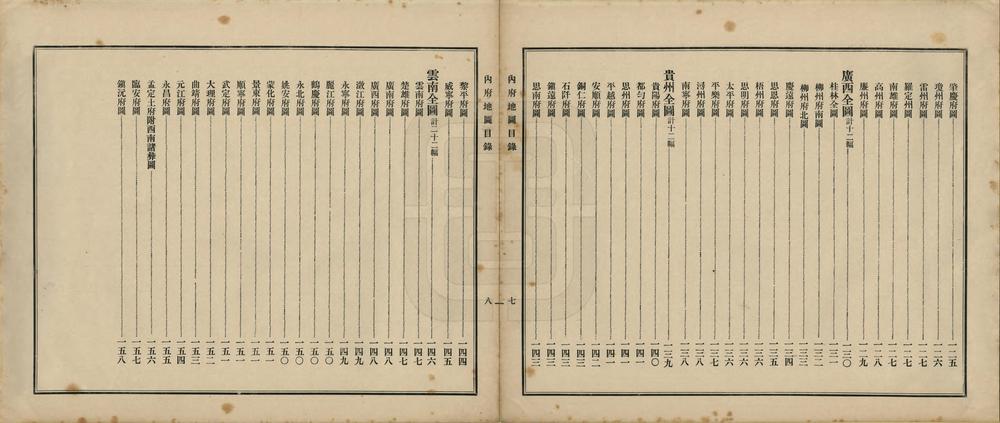 肇慶府圖 一二五
瓊州府圖 一二六
雷州府圖 一二七
羅定州圖 一二七
南雄府圖 一二七
高州府圖 一二八
廉州府圖 一二九
廣西全圖 計十二幅 一三〇
桂林全圖 一三一
柳州府南圖 一三二
柳州府北圖 一三三
慶遠府圖 一三四
思恩府圖 一三五
梧州府圖 一三六
思明府圖 一三六
太平府圖 一三六
平樂府圖 一三七
潯州府圖 一三八
南寧府圖 一三八
貴州全圖 計十二幅 一三九
貴陽府圖 一四〇
都勻府圖 一四一
思州府圖 一四一
平越府圖 一四一
安順府圖 一四二
銅仁府圖 一四三
石阡府圖 一四三
鎮遠府圖 一四三
思南府圖 一四三
內府地圖目錄 七
內府地圖目錄 八
黎平府圖 一四四
威寧府圖 一四五
雲南全圖 計二十二幅 一四六
雲南府圖 一四七
楚雄府圖 一四七
廣南府圖 一四八
廣西府圖 一四八
澂江府圖 一四九
永寧府圖 一四九
麗江府圖 一五〇
鶴慶府圖 一五〇
永北府圖 一五〇
姚安府圖 一五〇
蒙化府圖 一五一
景東府圖 一五一
順寧府圖 一五一
武定府圖 一五一
大理府圖 一五二
曲靖府圖 一五三
元江府圖 一五四
永昌府圖 一五五
孟定土府附西南諸彝圖 一五六
臨安府圖 一五七
鎮沅府圖 一五八